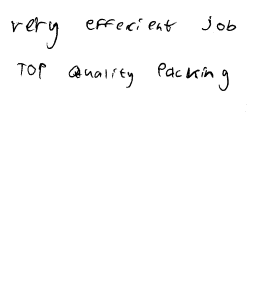 very effecient job
TOP Quality Packing